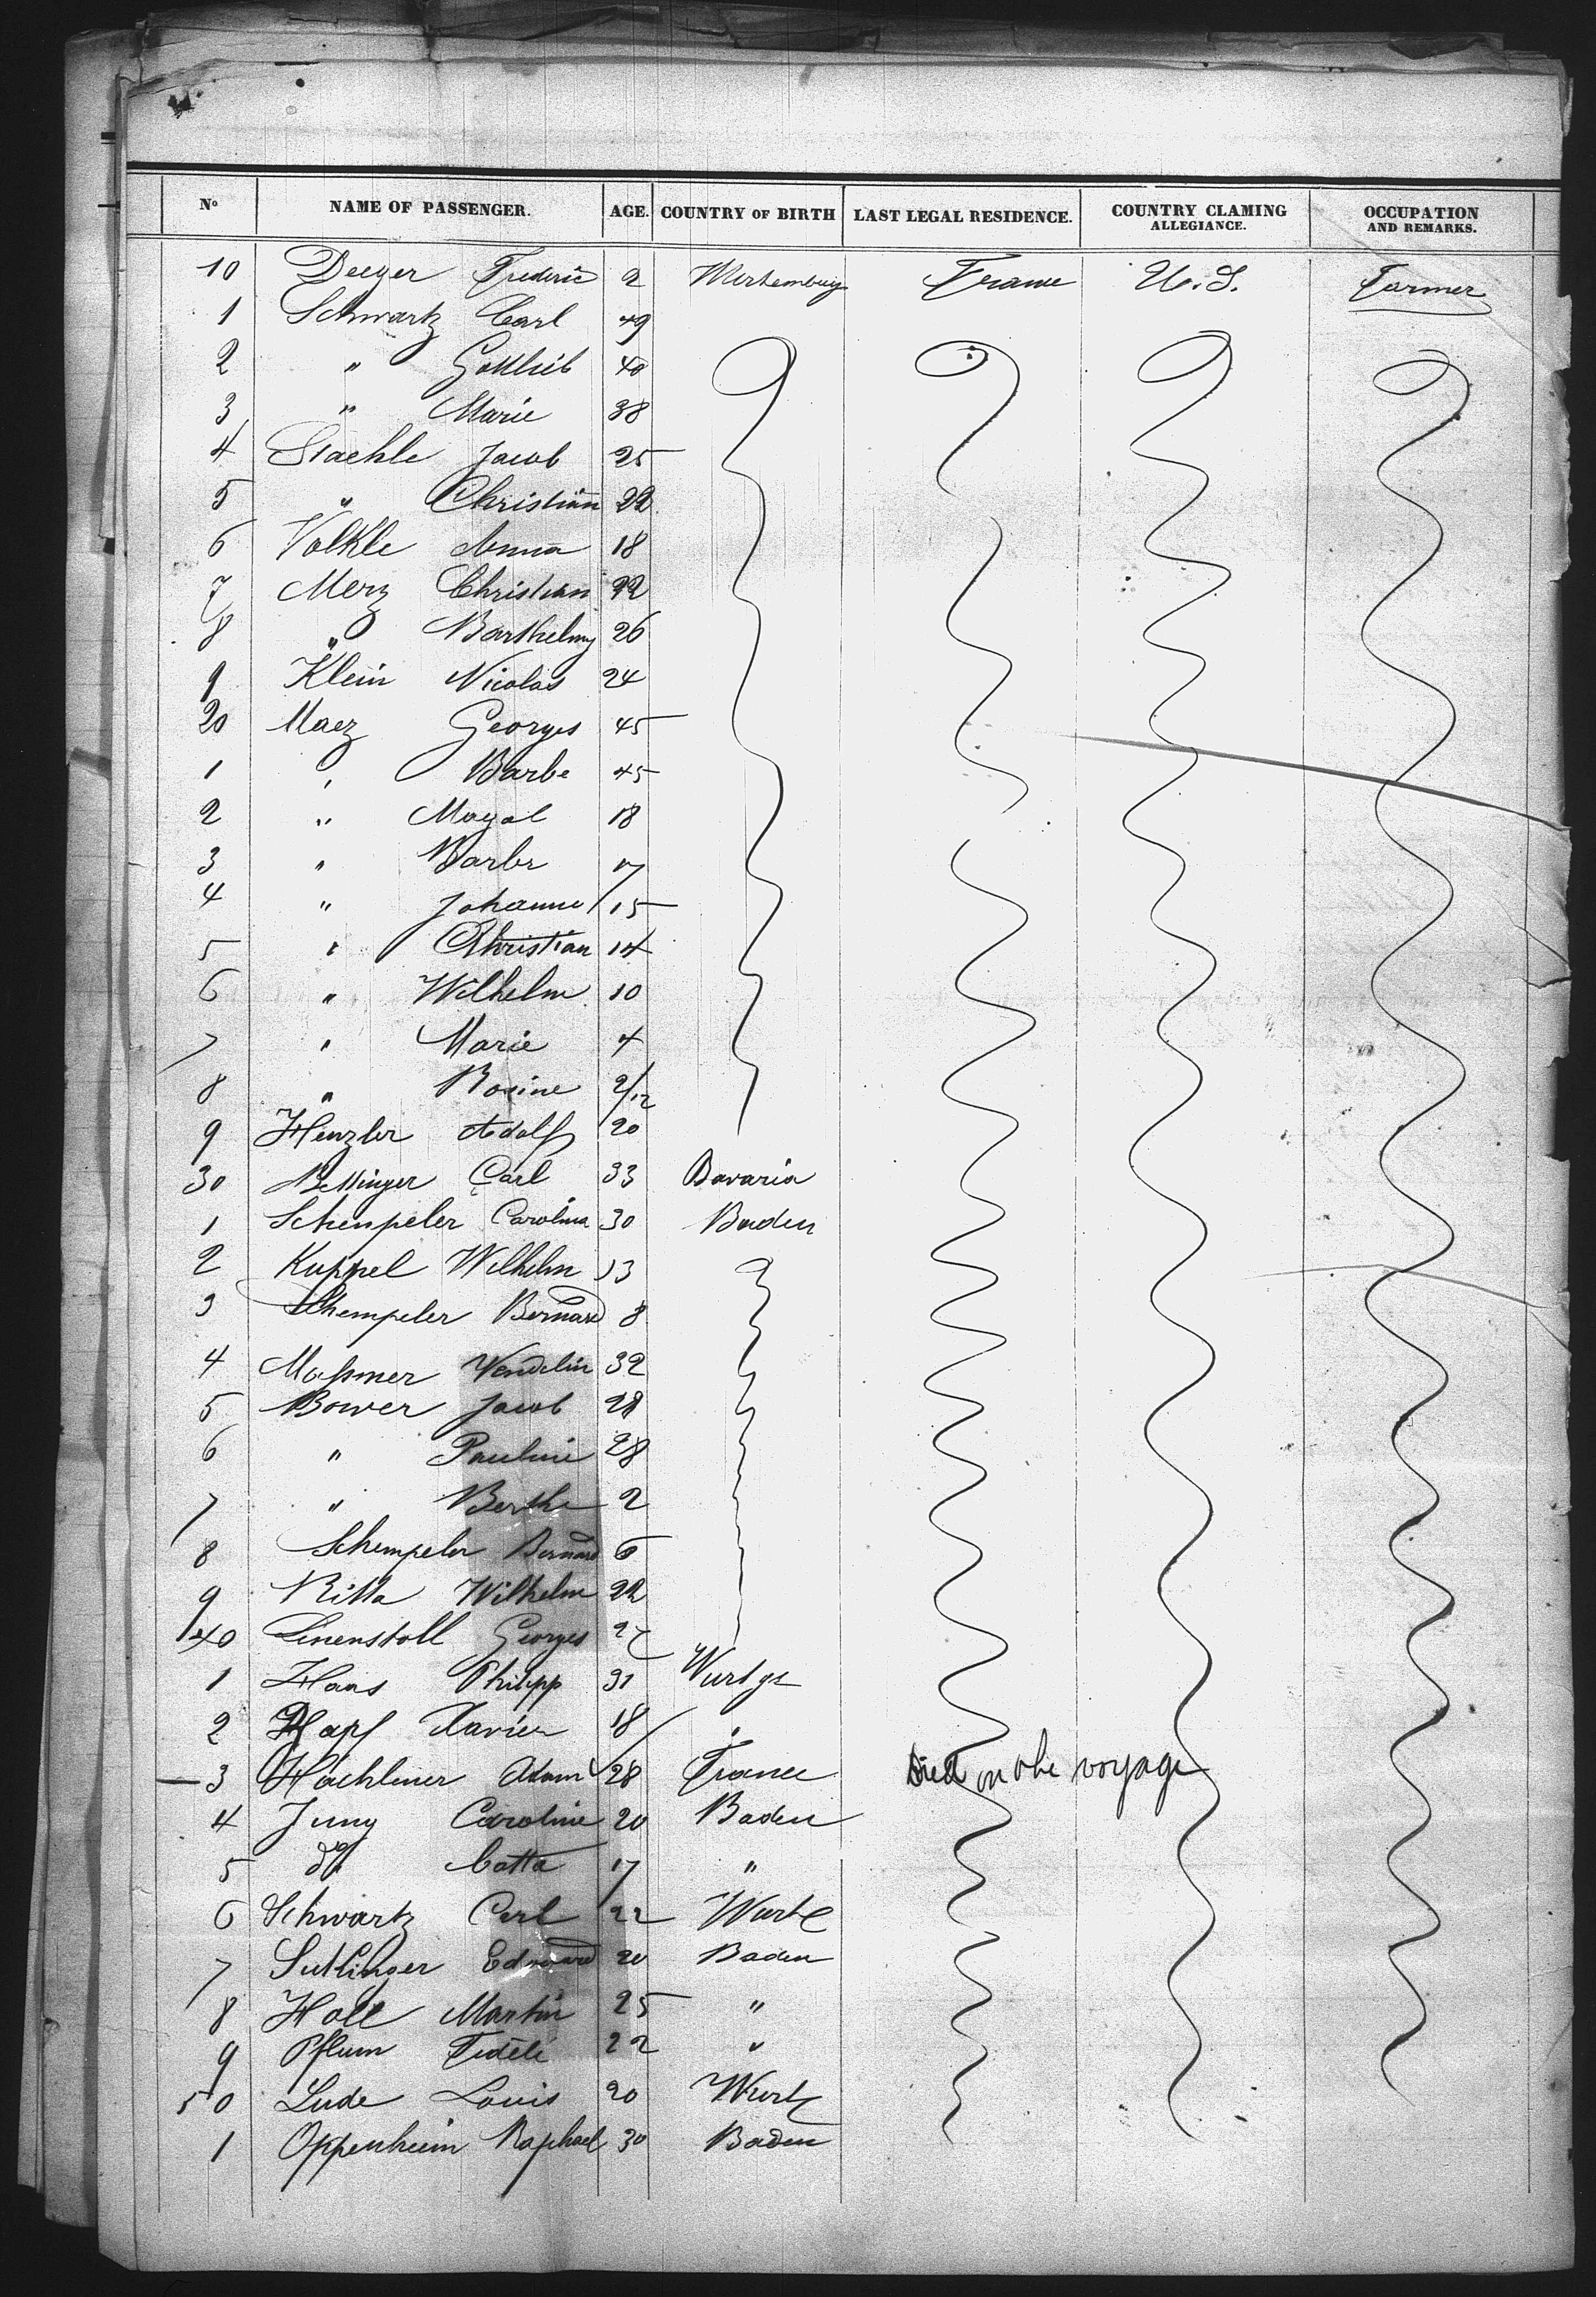 No NAME OF PASSENGER. AGE. COUNTRY OF BIRTH LAST LEGAL RESIDENCE. COUNTRY CLAMING ALLEGIANCE. OCCUPATION AND REMARKS.
10 Deeger Frederic 2 Wertemburg France U.S. Farmer
1 Schwartz Carl 49
2 " Gottlieb 40
3 " Marie 38
4 Staehle Jacob 25
5 " Christian 22
6 Volkle Anna 18
7 Merz Christian 22
8 " Barthelmy 26
9 Klein Nicolas 24
20 Maez Georges 45
1 " Barbe 45
2 " Magal 18
3 " Barbe 17
4 " Johanne 15
5 " Christian 14
6 " Wilhelm 10
7 " Marie 4
8 " Rosine 2/12
9 Henzler Adolf 20
30 Bettinger Carl 33 Bavaria
1 Schempeler Carolina 30 Baden
2 Kuppel Wilhelm 13
3 Schempeler Bernard 8
4 Maßmer Vendelin 32
5 Bower Jacob 28
6 " Pauline 28
7 " Bertha 2
8 Schempeler Bernard 6
9 Ritta Wilhelm 22
40 Linenstoll Georges
1 Haas Philipp 31
2 Hapf Xavier 18 "
3 Hachliner Adam 28 France Died on the voyage
4 Jung Caroline 20 Baden
5 do Catta 17 "
6 Schwartz Carl 22 Wurt
7 Sutlinger Edward 20 Baden
8 Holl Martin 25 "
9 Pflum Fidéle 22 "
50 Lude Louis 20 Wurt
1 Oppenheim Raphael 30 Baden